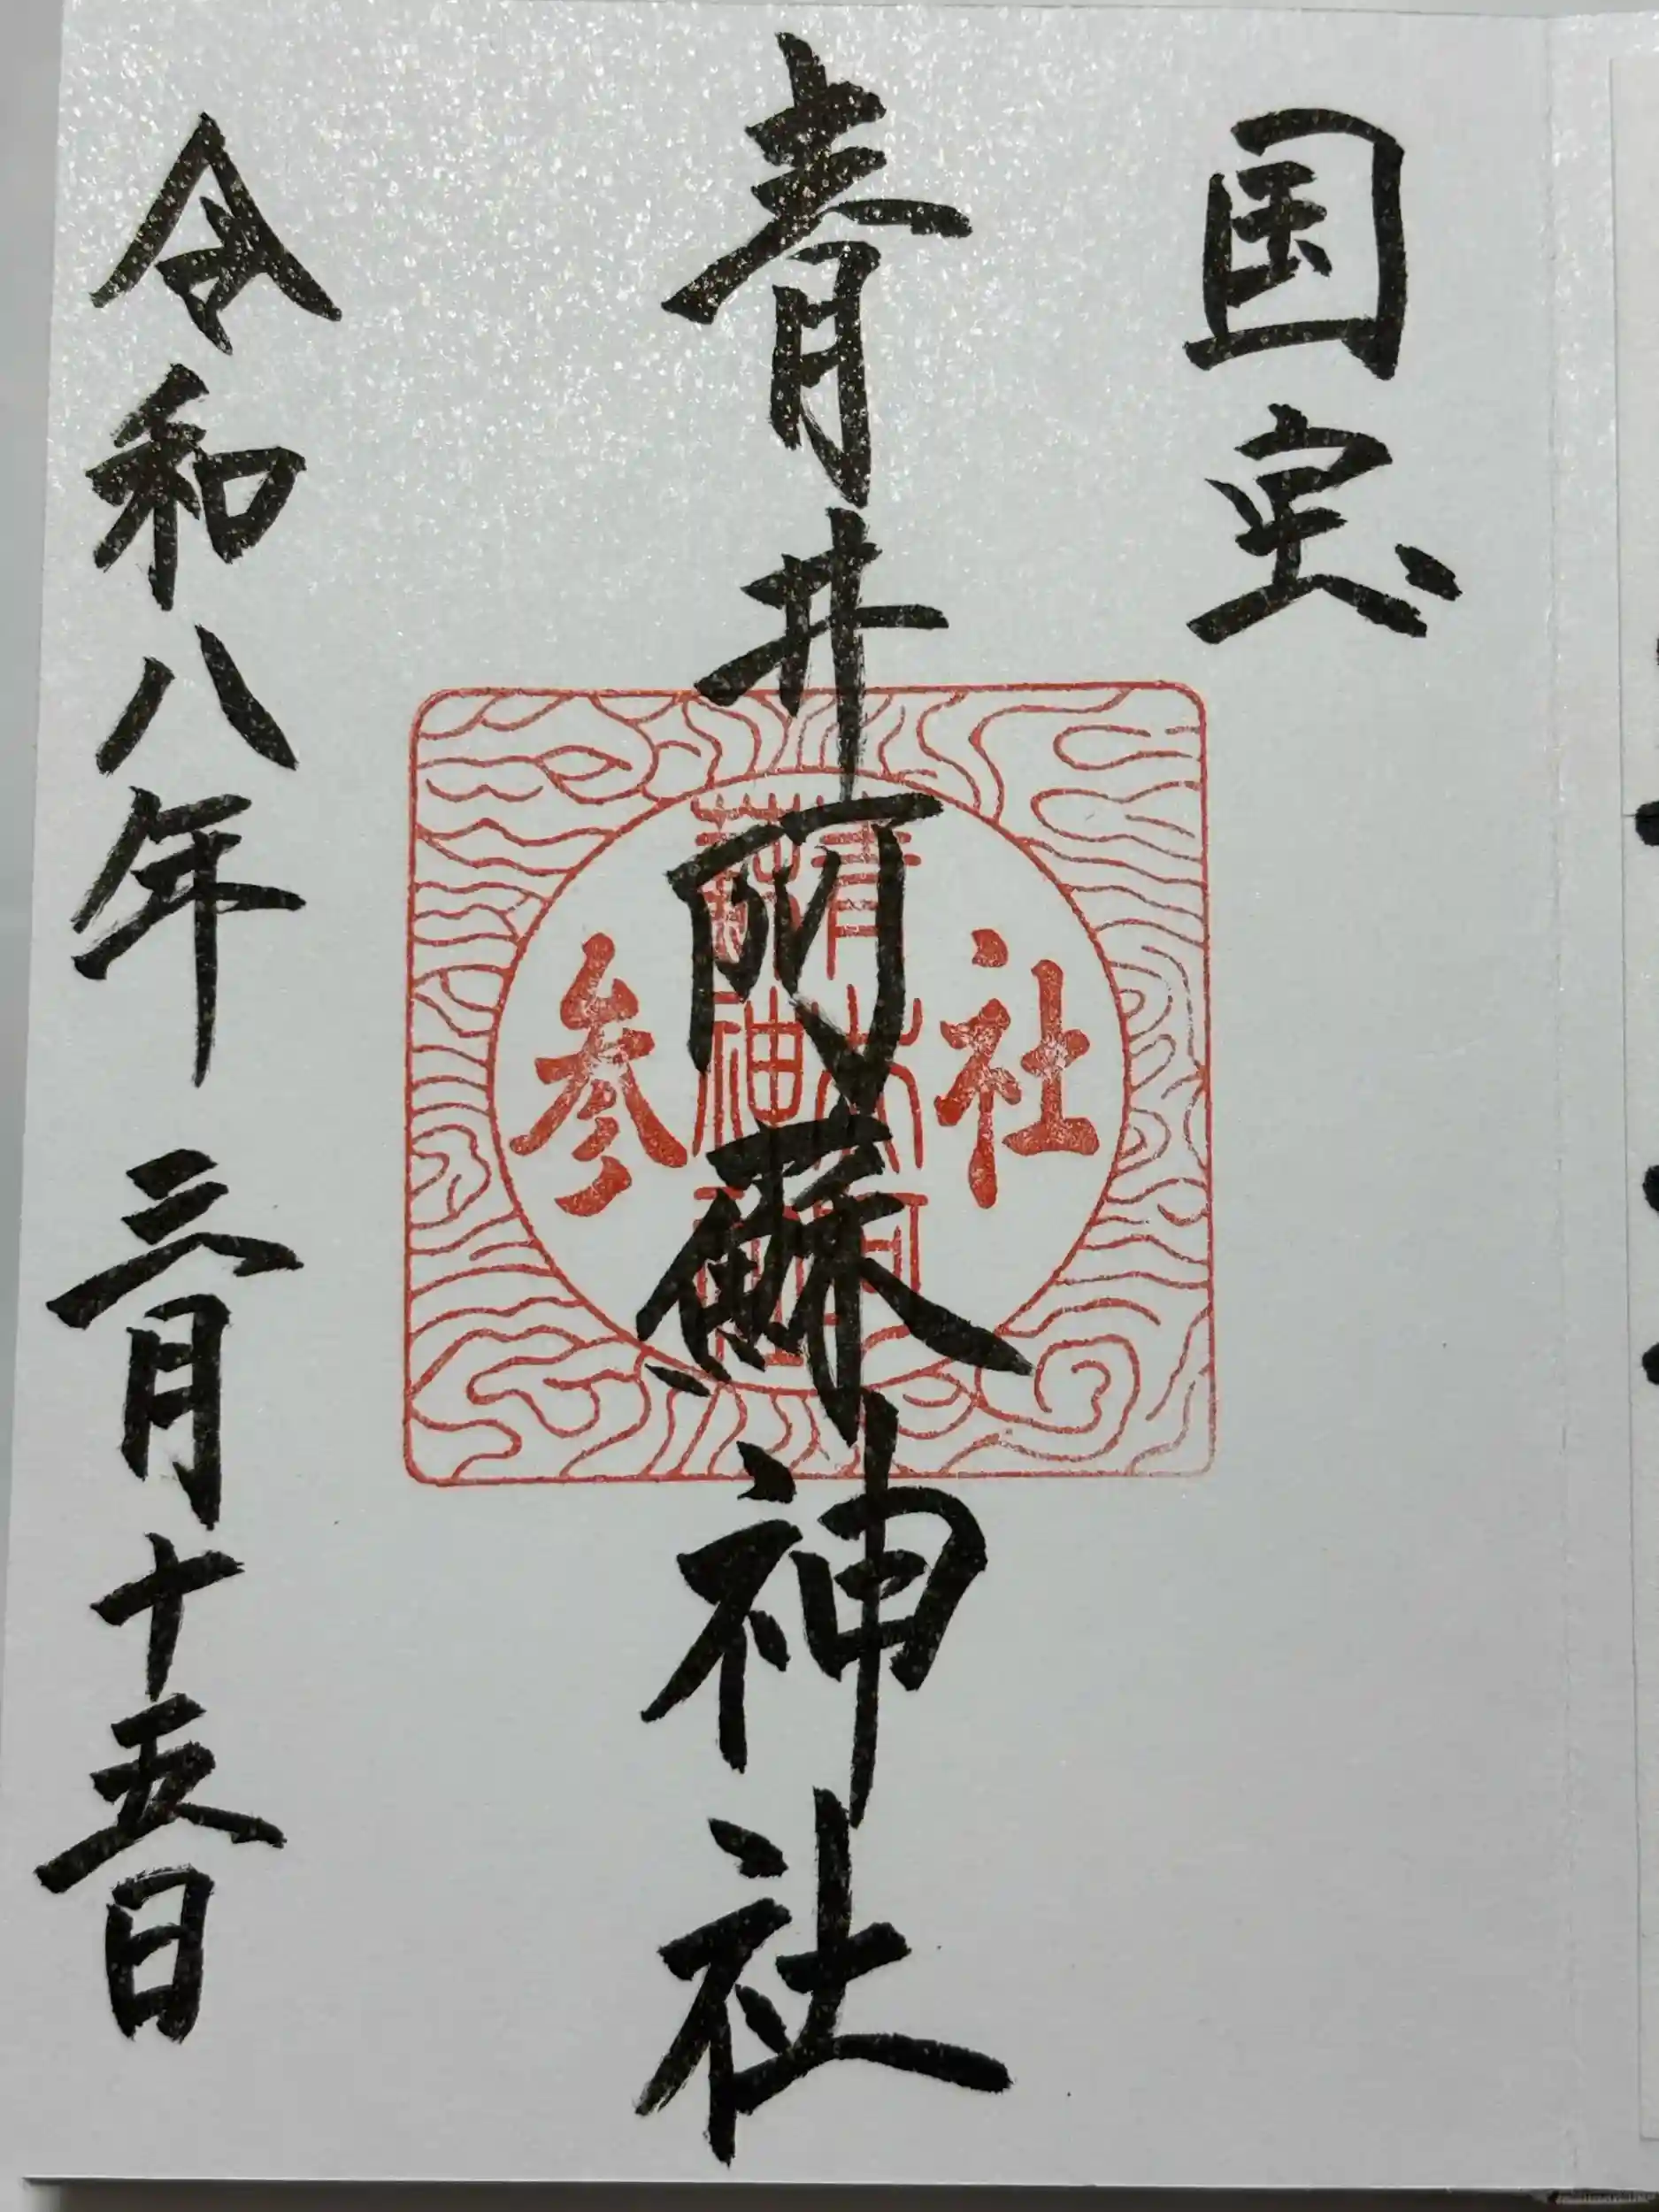 国宝
青井阿蘇神社
社参
青井阿蘇神社
令和八年三月十五日